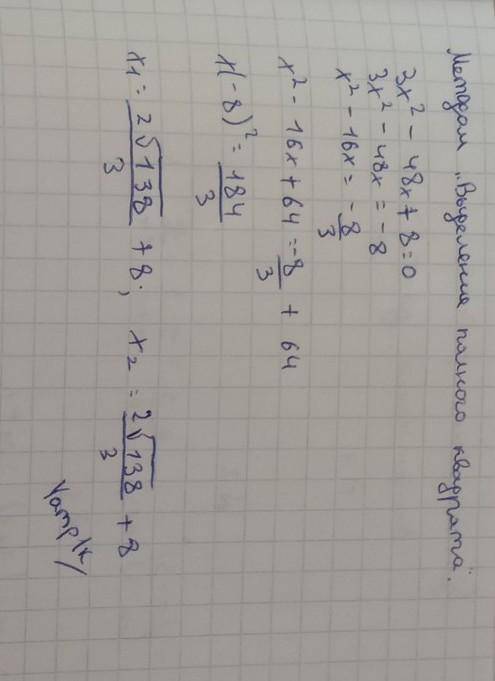 Методом „Выделения полного квадрата".
3x² - 48x + 8 = 0
3x² - 48x = -8
x² - 16x = -8/3
x² - 16x + 64 = -8/3 + 64
x(-8)² = 184/3
x1 = 2√138/3 + 8; x2 = 2√138/3 + 8